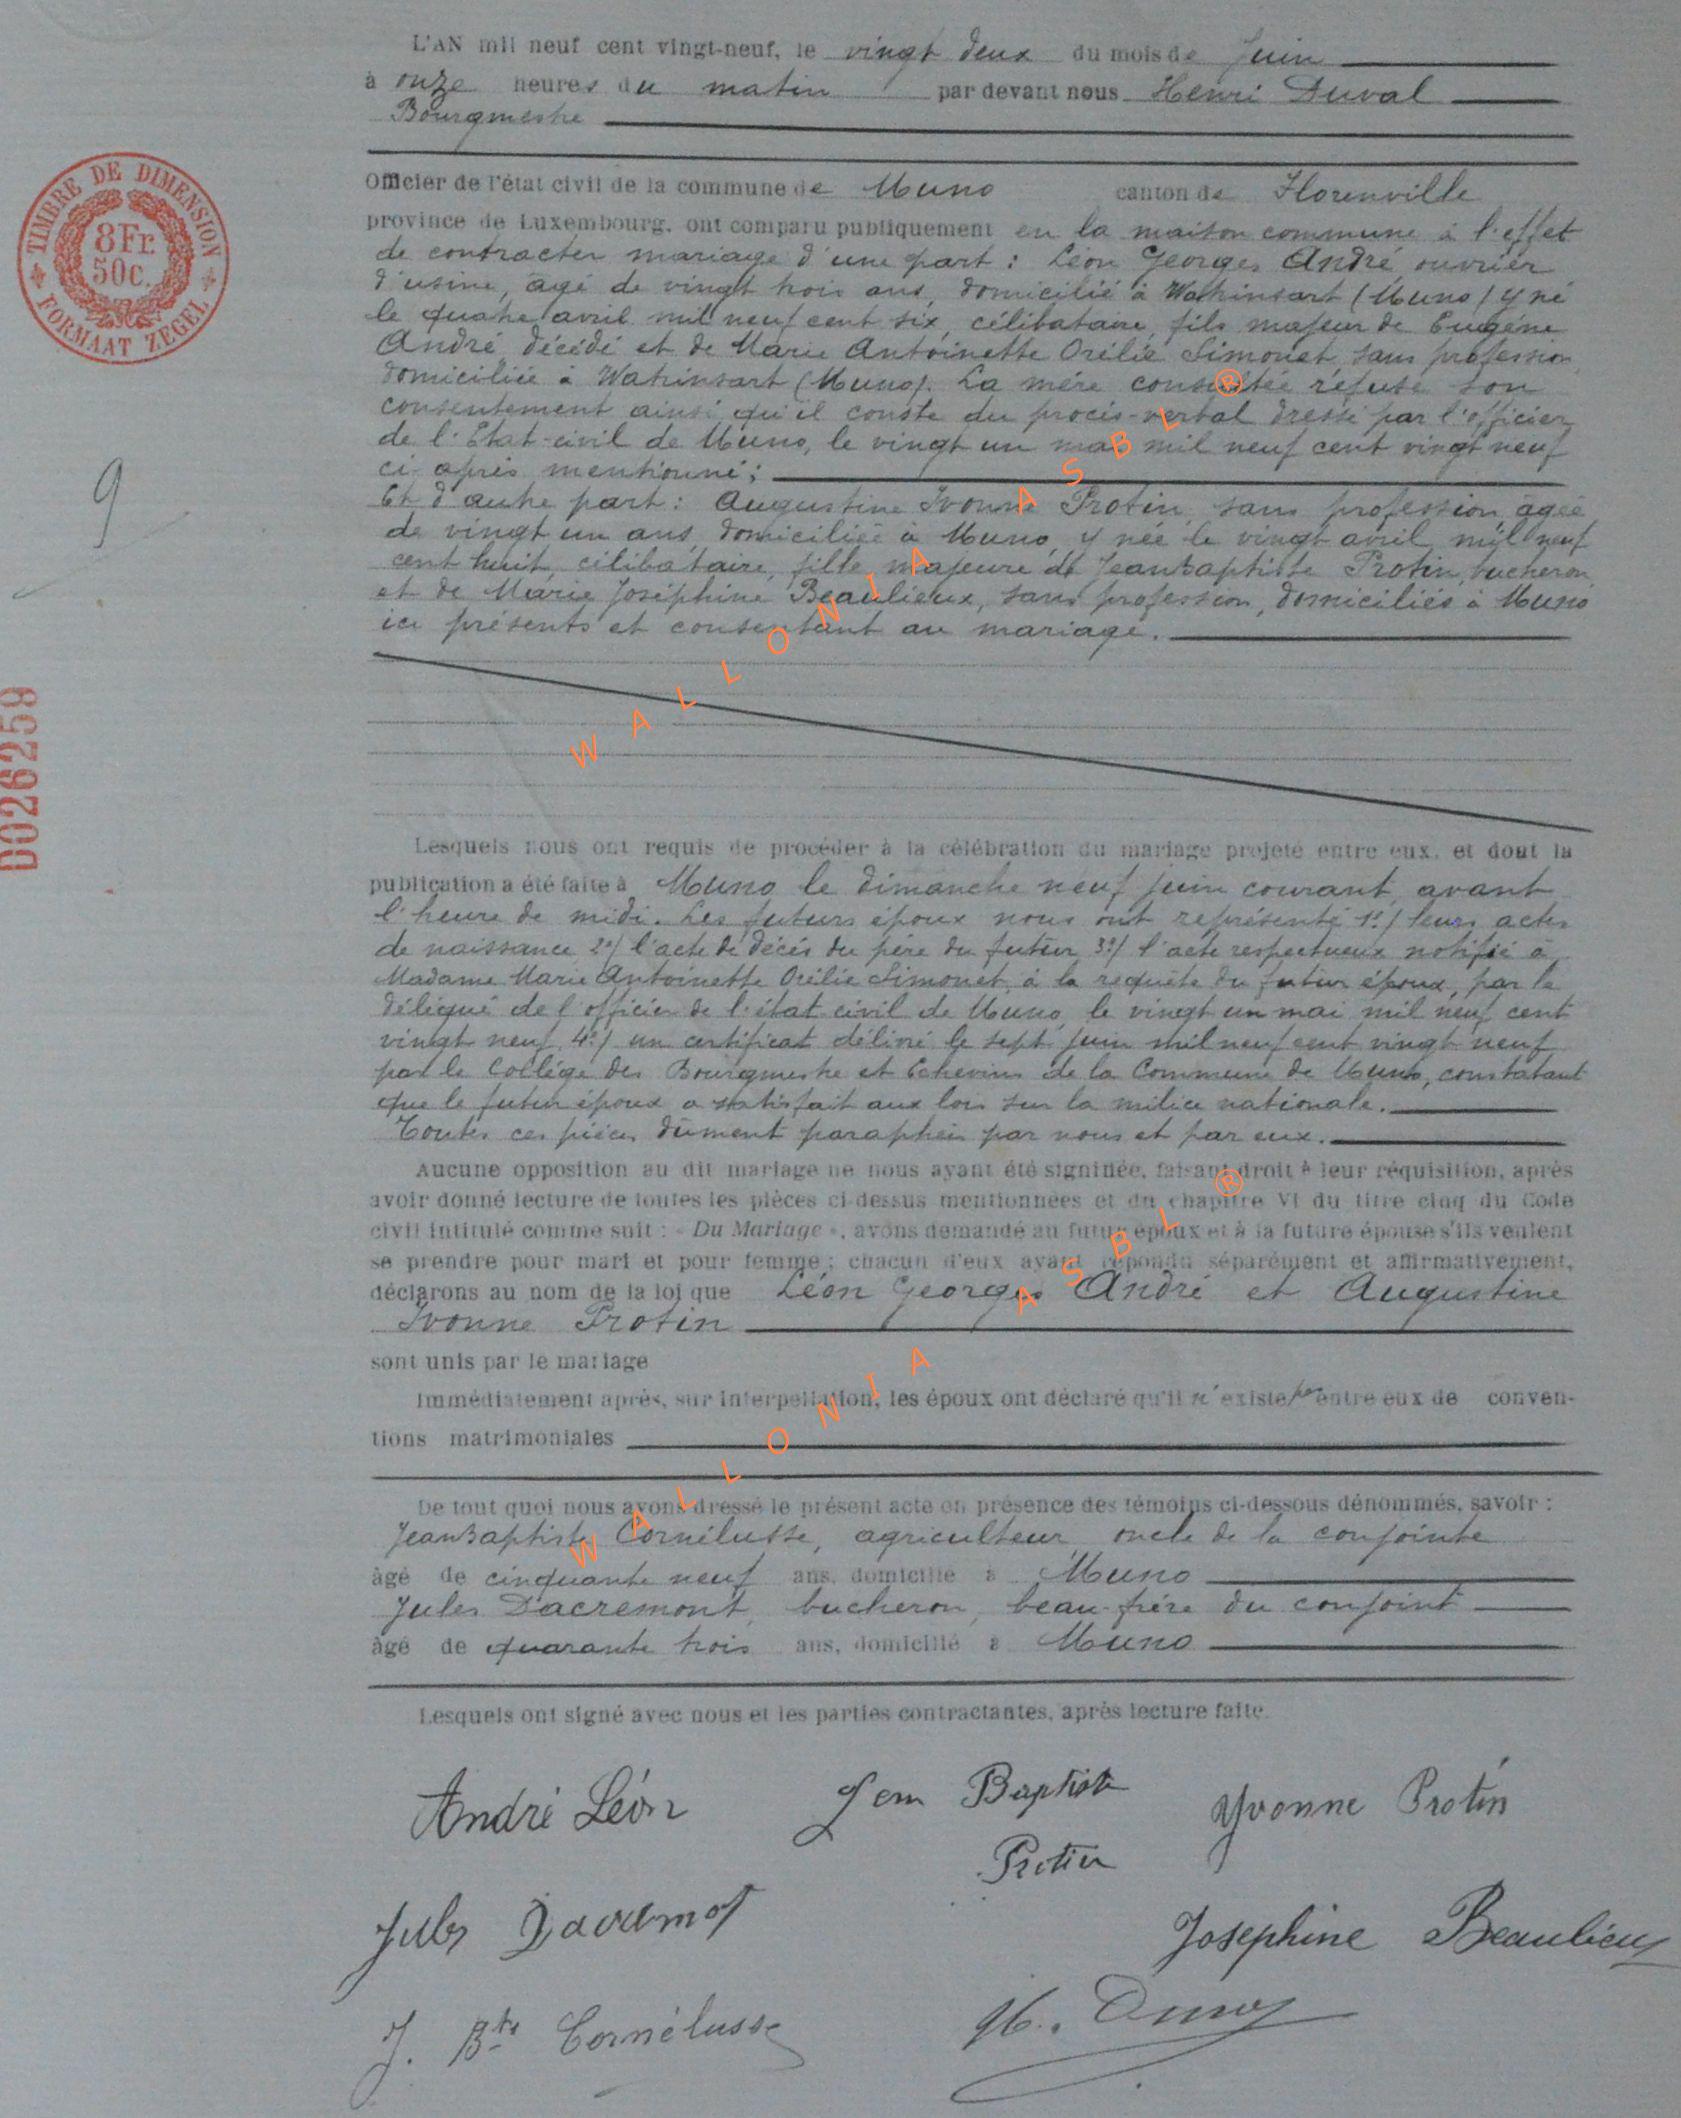 L'AN mil neuf cent vingt-neuf, le vingt deux du mois de Juin
à onze heures du matin par devant nous Henri Duval
Bourgmestre
TIMBRE DE DIMENSION
8Fr.
50c.
FORMAAT ZEGEL
Officier de l'état civil de la commune de Muno canton de Florenville
province de Luxembourg, ont comparu publiquement en la maison commune à l'effet
de contracter mariage d'une part : Léon Georges André ouvrier
d'usine, âgé de vingt trois ans, domicilié à Watrinsart (Muno) y né
le quatre avril mil neuf cent six, célibataire, fils majeur de Eugène
André décédé et de Marie Antoinette Orélie Simonet sans profession,
domiciliée à Watrinsart (Muno). La mère consultée refuse son
consentement ainsi qu'il conste du procès-verbal dressé par l'officier
de l'Etat-civil de Muno, le vingt un mai mil neuf cent vingt neuf
ci après mentionné ;
9
Et d'autre part : Augustine Ivonne Protin, sans profession, âgée
de vingt un ans, domiciliée à Muno, y née le vingt avril mil neuf
cent huit, célibataire, fille majeure de Jean Baptiste Protin, bucheron,
et de Marie Joséphine Beaulieux, sans profession, domiciliés à Muno
ici présents et consentant au mariage.
D026259
Lesquels nous ont requis de procéder à la célébration du mariage projeté entre eux, et dont la
publication a été faite à Muno le dimanche neuf juin courant, avant
l'heure de midi. Les futurs époux nous ont représenté 1°/ leurs actes
de naissance 2°/ l'acte de décès du père du futur 3°/ l'acte respectueux notifié à
Madame Marie Antoinette Orélie Simonet, à la requête du futur époux, par le
délégué de l'officier de l'état civil de Muno, le vingt un mai mil neuf cent
vingt neuf, 4°/ un certificat délivré le sept juin mil neuf cent vingt neuf
par le Collège des Bourgmestre et Echevins de la Commune de Muno, constatant
que le futur époux a satisfait aux lois sur la milice nationale.
Toutes ces pièces dûment paraphées par nous et par eux.
Aucune opposition au dit mariage ne nous ayant été signifiée, faisant droit à leur réquisition, après
avoir donné lecture de toutes les pièces ci-dessus mentionnées et du chapitre VI du titre cinq du Code
civil intitulé comme suit : « Du Mariage », avons demandé au futur époux et à la future épouse s'ils veulent
se prendre pour mari et pour femme ; chacun d'eux ayant répondu séparément et affirmativement,
déclarons au nom de la loi que Léon Georges André et Augustine
Ivonne Protin
sont unis par le mariage
Immédiatement après, sur interpellation, les époux ont déclaré qu'il n'existe pas entre eux de conven-
tions matrimoniales
De tout quoi nous avons dressé le présent acte en présence des témoins ci-dessous dénommés, savoir :
Jean Baptiste Cornélusse, agriculteur, oncle de la conjointe
âgé de cinquante neuf ans, domicilié à Muno
Jules Dacremont, bucheron, beau-frère du conjoint
âgé de quarante trois ans, domicilié à Muno
Lesquels ont signé avec nous et les parties contractantes, après lecture faite.
André Léon Jean Baptiste Yvonne Protin
Protin
Jules Dacremont Josephine Beaulieux
J. Bte Cornélusse H. Duval
WALLONIA ASBL ®
WALLONIA ASBL ®